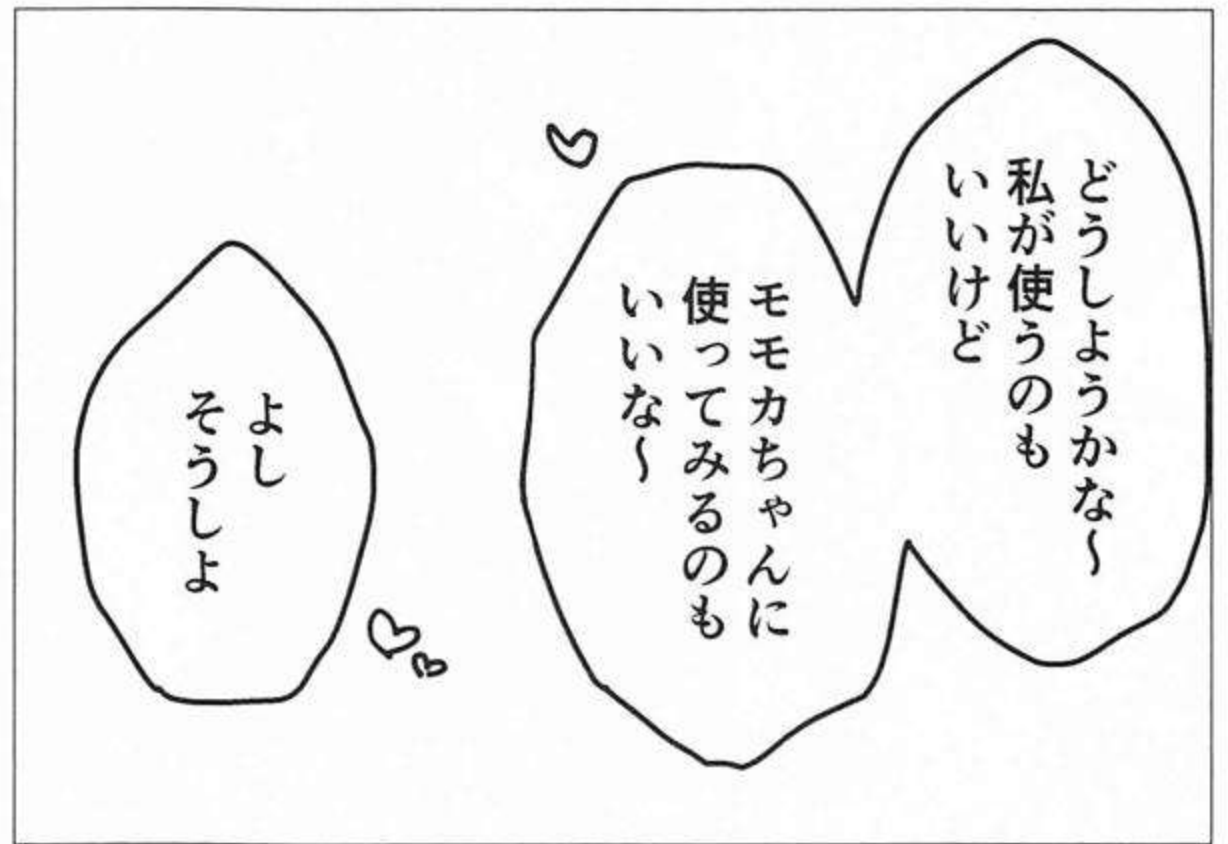 どうしようかな〜
私が使うのも
いいけど
モモカちゃんに
使ってみるのも
いいな〜
よし
そうしよ